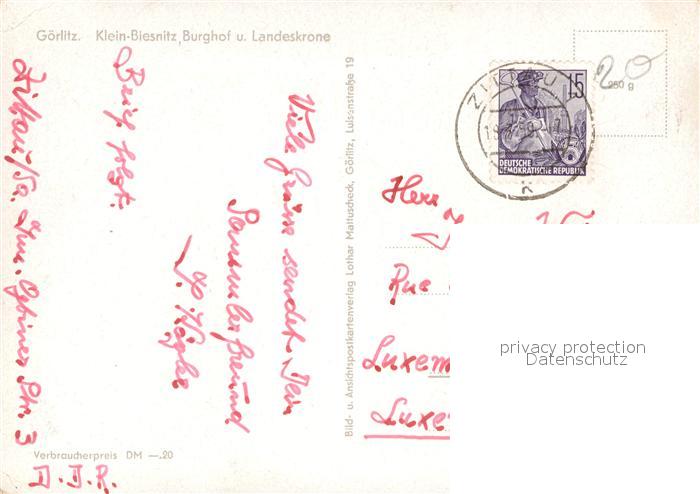 Görlitz. Klein-Biesnitz, Burghof u. Landeskrone
Viele Grüsse sendet Dein
Sammlerfreund
Brief folgt.
Zittau/Sa.
Str. 3
D.D.R.
Verbraucherpreis DM —.20
Bild- u. Ansichtspostkartenverlag Lothar Mattuscheck, Görlitz, Luisenstraße 19
ZITTAU
15
DEUTSCHE
DEMOKRATISCHE REPUBLIK
k
20
250 g
Herr
Rue
Luxem
Luxe
privacy protection
Datenschutz